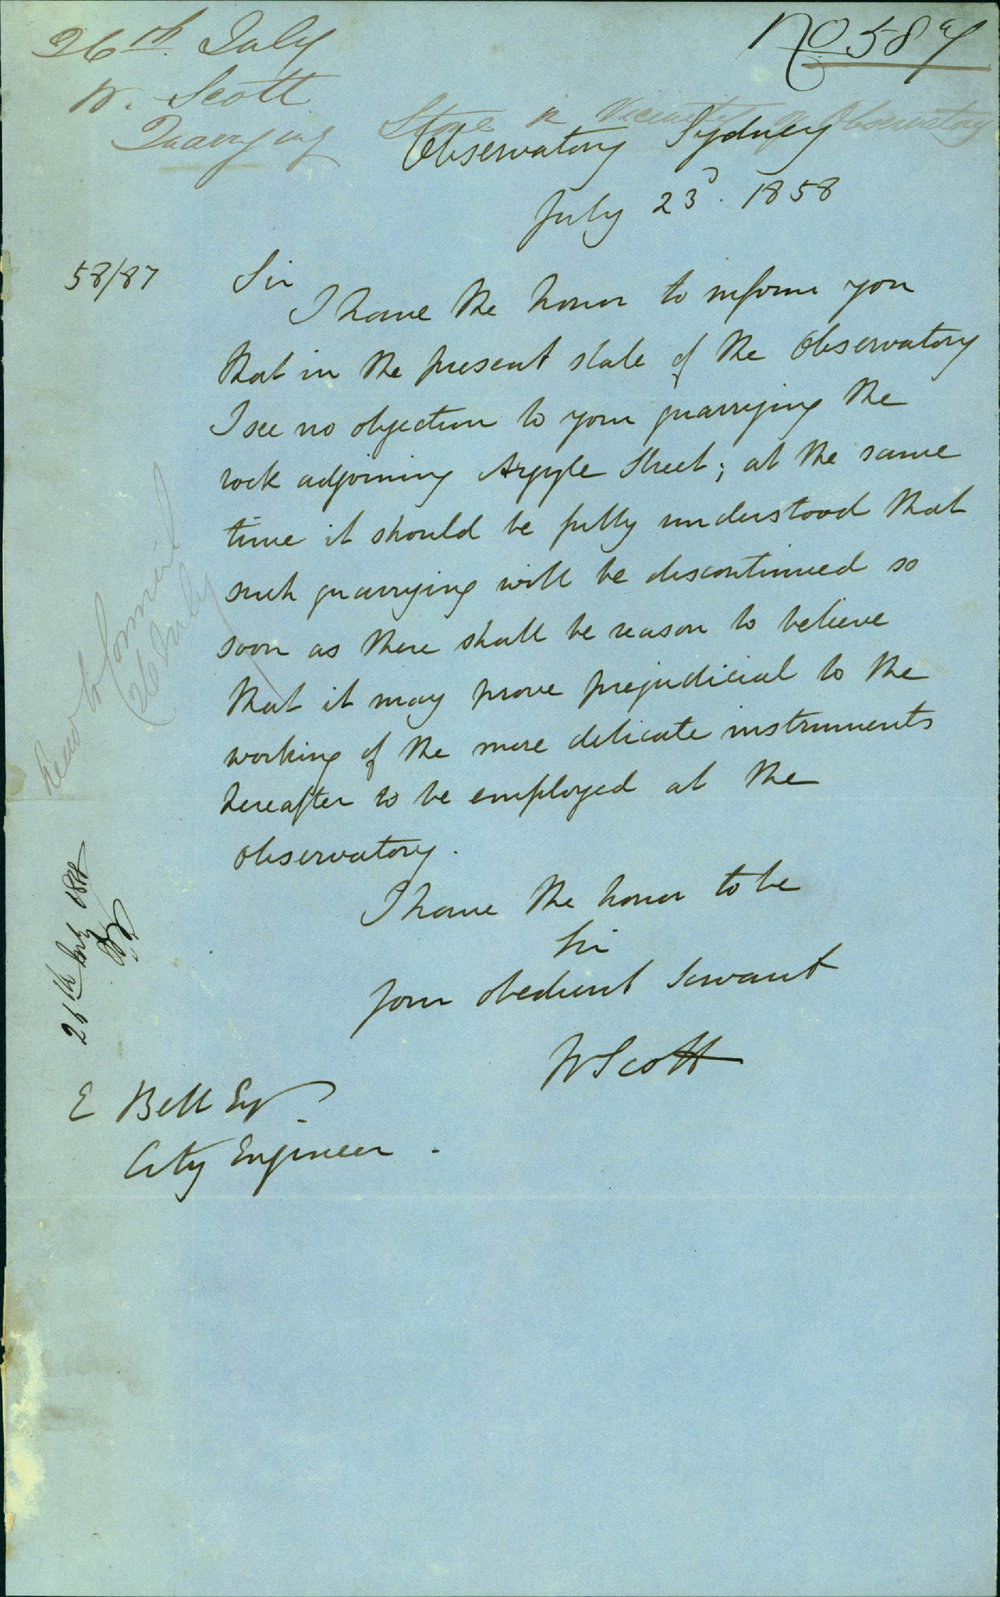 26th July
W. Scott
Quarrying Stone in Vicinity of Observatory
No 587
Observatory Sydney
July 23d. 1858
58/87
Sir
I have the honor to inform you
that in the present state of the Observatory
I see no objection to your quarrying the
rock adjoining Argyle Street; at the same
time it should be fully understood that
such quarrying will be discontinued so
soon as there shall be reason to believe
that it may prove prejudicial to the
working of the more delicate instruments
hereafter to be employed at the
Observatory.
I have the honor to be
Sir
Your obedient Servant
W Scott
E Bell Esq
City Engineer.
to Council
26 July
26th July